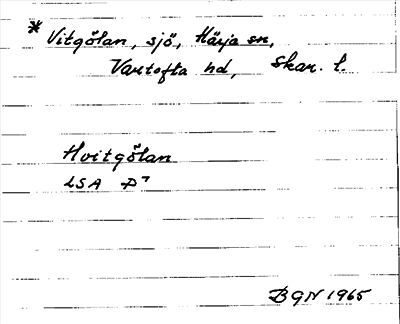 * Vitgölan, sjö, Härja sn,
Vartofta hd, Skar. l.
Hvitgölan
LSA D7
BGN 1965